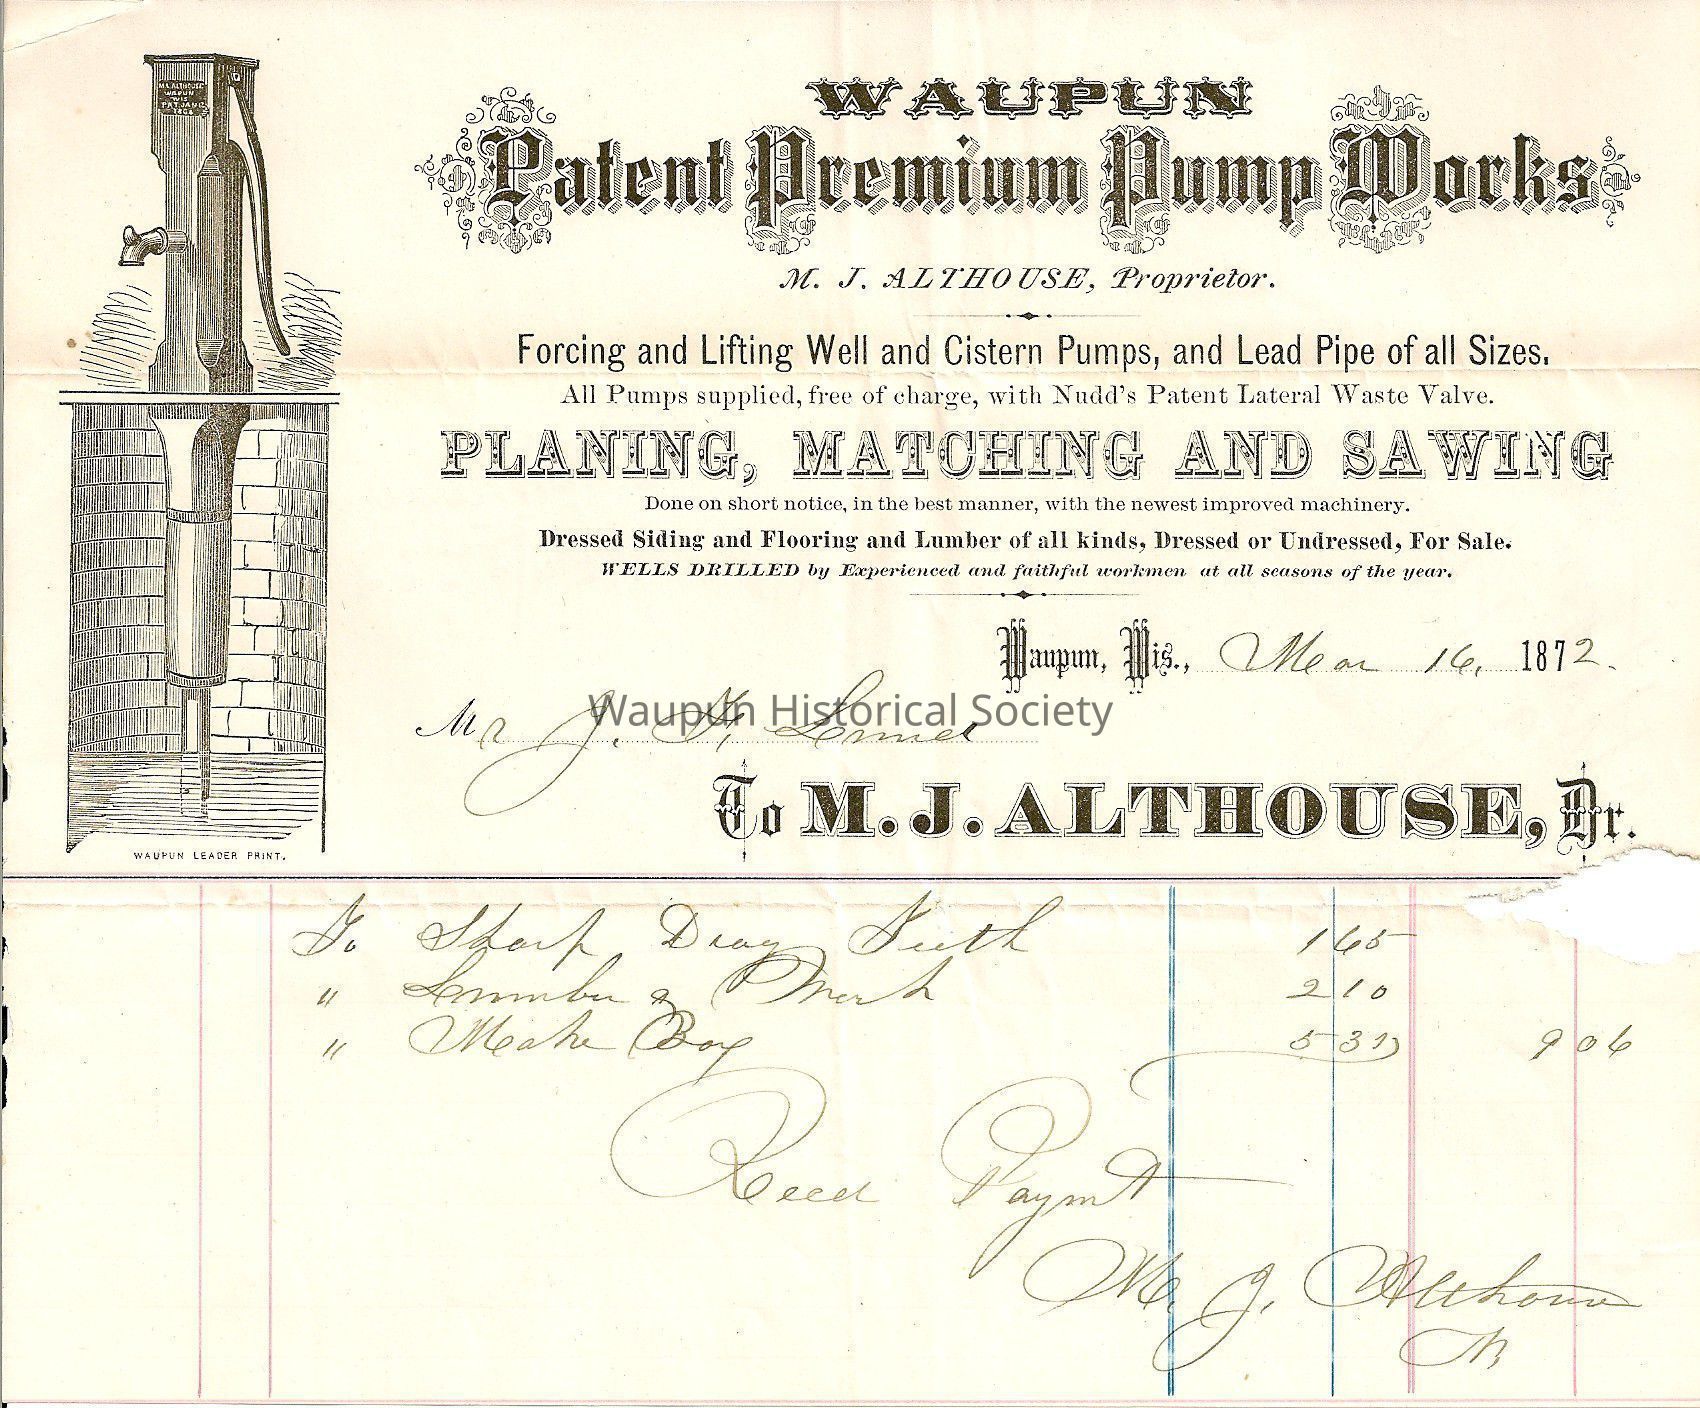 M. J. ALTHOUSE
WAUPUN
WIS
PAT. JAN
WAUPUN
Patent Premium Pump Works
M. J. ALTHOUSE, Proprietor.
Forcing and Lifting Well and Cistern Pumps, and Lead Pipe of all Sizes.
All Pumps supplied, free of charge, with Nudd's Patent Lateral Waste Valve.
PLANING, MATCHING AND SAWING
Done on short notice, in the best manner, with the newest improved machinery.
Dressed Siding and Flooring and Lumber of all kinds, Dressed or Undressed, For Sale.
WELLS DRILLED by Experienced and faithful workmen at all seasons of the year.
Waupun, Wis., Mar 16, 1872.
Waupun Historical Society
Mr J. F.
To M. J. ALTHOUSE, Dr.
WAUPUN LEADER PRINT.
To Sharp Drag Teeth 165
" Lumber & Work 210
" Make Box 531 906
Recd Paymt
M. J. Althouse